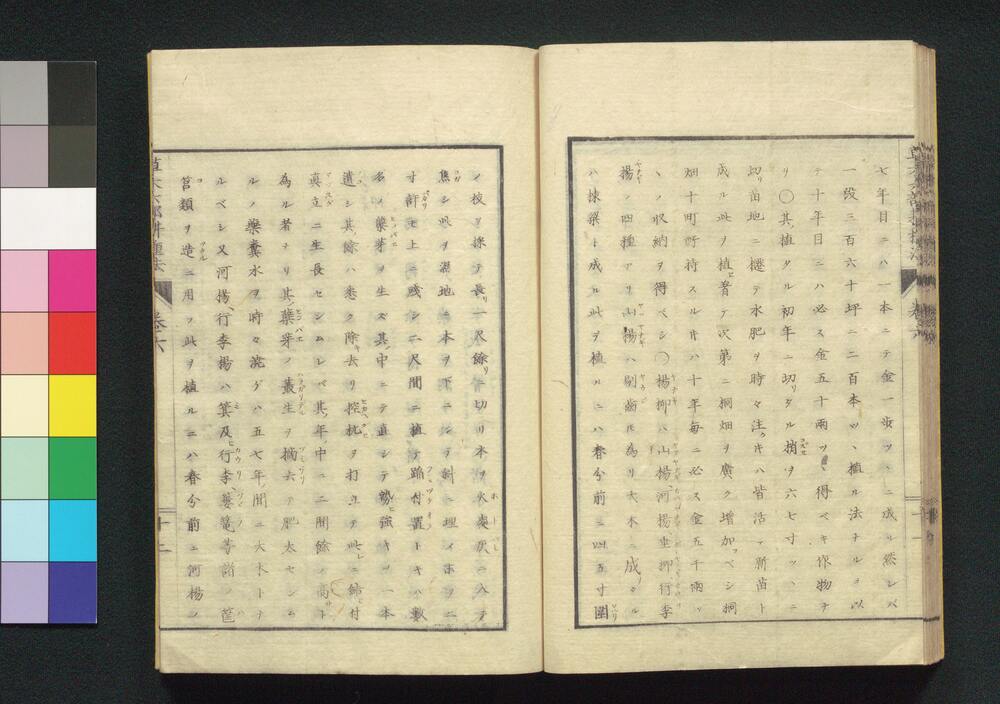 七年目ニハ一本ニテ金一歩ツヽニ成ル然レバ
一段三百六十坪ニ二百本ツヽ植ル法ナルヲ以
テ十年目ニハ必ス金五十兩ツヽ得ベキ作物ナ
リ〇其植タル初年ニ切リタル梢ヲ六七寸ツヽニ
切リ苗地ニ攓テ水肥ヲ時々注ク𪜈ハ皆活ヲ新苗ト
成ル此ヲ植ヒ着テ次第ニ桐畑ヲ廣ク增加ベシ桐
畑十町所持スル𪜈ハ十年每ニ必ス金五千兩ツ
ヽノ收納ヲ得ベシ〇楊柳ハ山楊河楊垂柳行李
楊ノ四種アリ山楊ハ剔齒ニ為リ大木ニ成リタル
ハ棟梁ト成ル此ヲ植ルニハ春分前ニ四五寸圍
ノ枝ヲ採テ長リ一尺餘リニ切リ本ヲ火爐灰ニ入テ
焦シ此ヲ濕地ニ本ヲ下ニシテ斜ニ埋メ末ヲ二
寸許土上ニ殘シ二尺間ニ植テ蹈付置トキハ數
多ノ蘖芽ヲ生ズ其中ニテ直シテ勢ヒ強キヲ一本
遺シ其餘ハ悉ク除去リ控杭ヲ打立テ此レニ縛付
真立ニ生長セシムレベ其年中ニ二間餘ノ高サト
為ル者ナリ其蘖芽ノ叢生ヲ摘去テ肥太セシム
ルノ藥糞水ヲ時々澆ガハ五七年ノ間ニ大木トナ
ルベシ又河楊、行李楊ハ箕及ヒ行李、簍籠等諸ノ筐
筥類ヲ造ニ用フ此ヲ植ルニハ春分前ニ河楊ノ
草木六部耕種法
卷六
十二